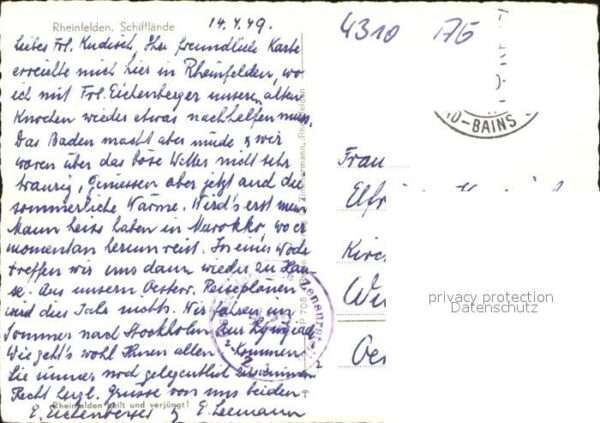 Rheinfelden, Schifflände
14.7.49.
Liebes Frl. Kudisch, Ihre freundliche Karte
erreichte mich hier in Rheinfelden, wo
ich mit Frl. Eichenberger unseren alten
Knochen wieder etwas nachhelfen muss.
Das Baden macht aber müde & wir
waren über das böse Wetter nicht sehr
traurig, geniessen aber jetzt auch die
sommerliche Wärme. Wird's erst mein
Mann heiss haben in Marokko, wo er
momentan herumreist. In einer Woche
treffen wir uns dann wieder zu Hau-
se. Aus unseren Oesterr. Reiseplänen
wird dies Jahr nichts. Wir fahren im
Sommer nach Stockholm zur Lingiad.
Wie geht's wohl Ihnen allen? Kommen
Sie immer noch gelegentlich zusammen?
Recht herzl. Grüsse von uns beiden
E. Eichenberger & G. Leemann
Rheinfelden heilt und verjüngt!
4310 AG
-BAINS
Frau
Elfr
Kirc
Oes
privacy protection
Datenschutz